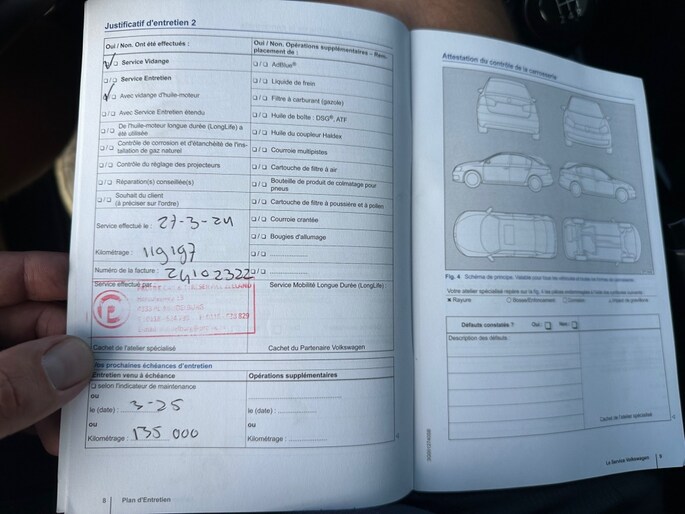 Justificatif d'entretien 2
Oui / Non. Ont été effectués :
☐/☐ Service Vidange
☐/☐ Service Entretien
☐/☐ Avec vidange d'huile-moteur
☐/☐ Avec Service Entretien étendu
☐/☐ De l'huile-moteur longue durée (LongLife) a
été utilisée
☐/☐ Contrôle de corrosion et d'étanchéité de l'ins-
tallation de gaz naturel
☐/☐ Contrôle du réglage des projecteurs
☐/☐ Réparation(s) conseillée(s)
☐/☐ Souhait du client
(à préciser sur l'ordre)
Service effectué le : 27-3-24
Kilométrage : 119197
Numéro de la facture : 24102322
Service effectué par
Cachet de l'atelier spécialisé
Oui / Non. Opérations supplémentaires – Rem-
placement de :
☐/☐ AdBlue®
☐/☐ Liquide de frein
☐/☐ Filtre à carburant (gazole)
☐/☐ Huile de boîte : DSG®, ATF
☐/☐ Huile du coupleur Haldex
☐/☐ Courroie multipistes
☐/☐ Cartouche de filtre à air
☐/☐ Bouteille de produit de colmatage pour
pneus
☐/☐ Cartouche de filtre à poussière et à pollen
☐/☐ Courroie crantée
☐/☐ Bougies d'allumage
☐/☐
☐/☐
Service Mobilité Longue Durée (LongLife)
Cachet du Partenaire Volkswagen
prochaines échéances d'entretien
Entretien venu à échéance
☐ selon l'indicateur de maintenance
ou
le (date) : 3-25
ou
Kilométrage : 135 000
Opérations supplémentaires
le (date) :
ou
Kilométrage :
8 Plan d'Entretien
Attestation du contrôle de la carrosserie
Fig. 4 Schéma de principe. Valable pour tous les véhicules et toutes les formes de carrosserie.
Rayure
Défauts constatés ? Oui : ☐ Non : ☐
Description des défauts :
Cachet de l'atelier spécialisé
Le Service Volkswagen 9